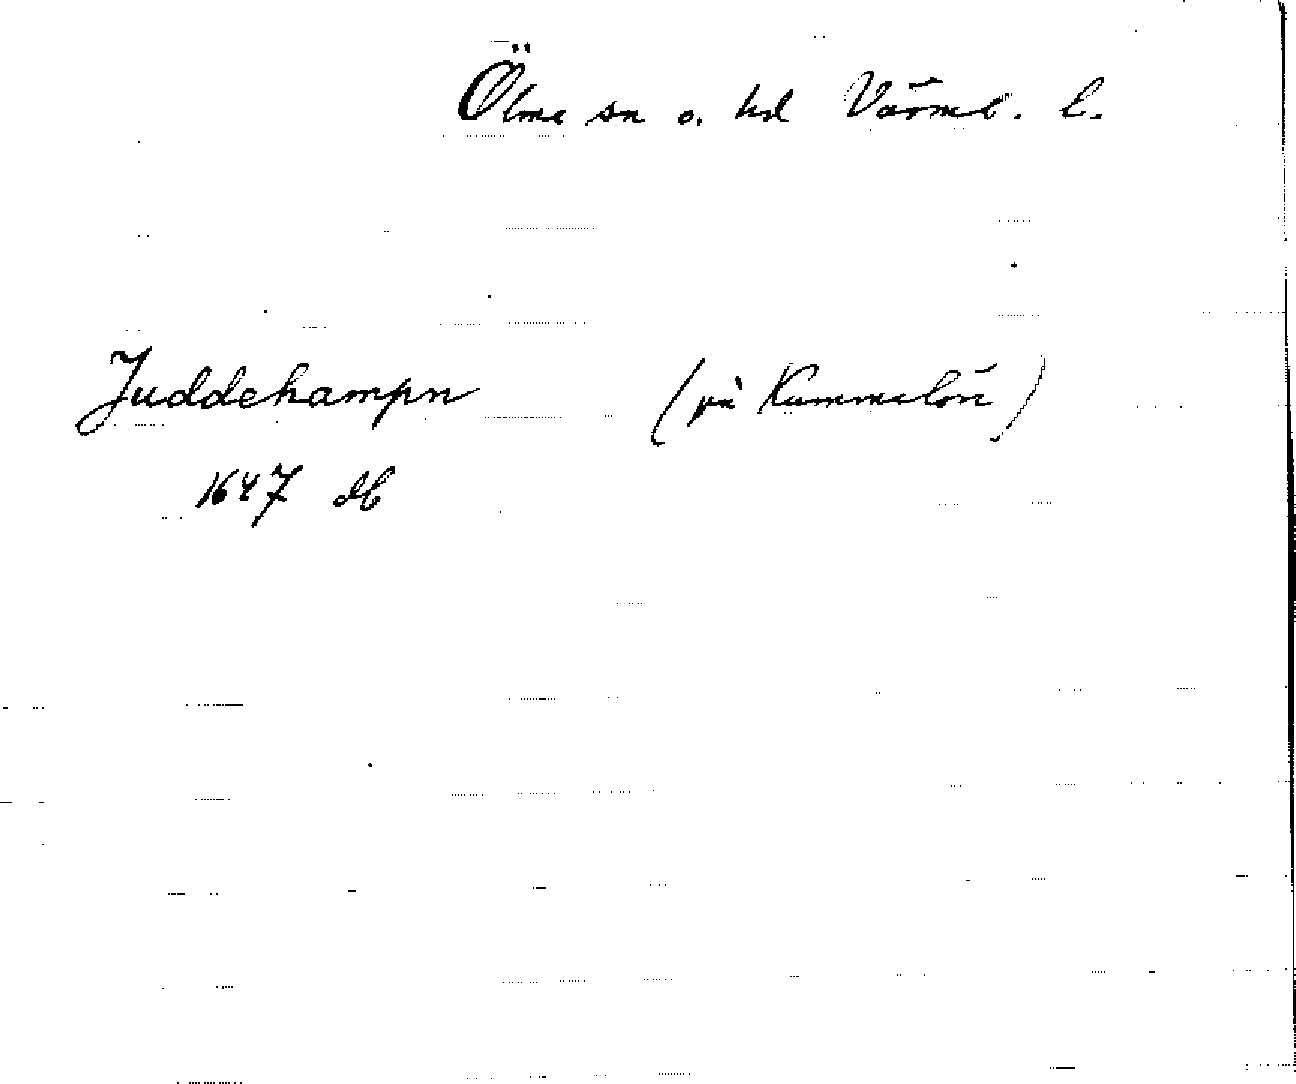 Ölme sn o. hd Värml. l.
Juddehampn (på Kummelön)
1647 db